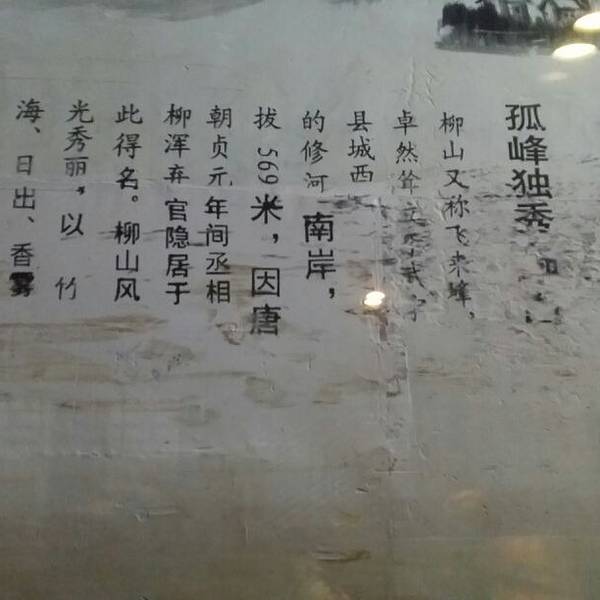 孤峰独秀
柳山又称飞来峰，
卓然耸立于武宁
县城西
的修河南岸，
拔569米，因唐
朝贞元年间丞相
柳浑弃官隐居于
此得名。柳山风
光秀丽，以竹
海、日出、香雾